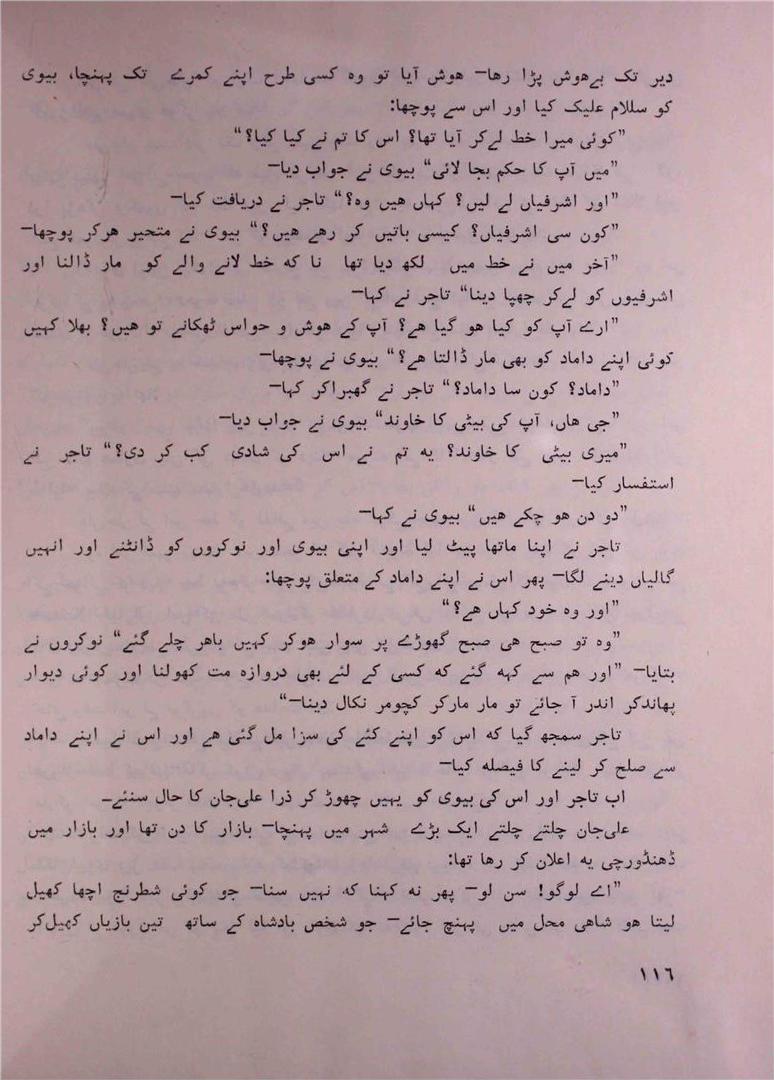 دیر تک بےهوش پڑا رها— هوش آیا تو وه کسی طرح اپنے کمرے تک پهنچا، بیوی
کو سللام علیک کیا اور اس سے پوچها:
”کوئی میرا خط لےکر آیا تها؟ اس کا تم نے کیا کیا؟“
”میں آپ کا حکم بجا لائی“ بیوی نے جواب دیا—
”اور اشرفیاں لے لیں؟ کهاں هیں وه؟“ تاجر نے دریافت کیا—
”کون سی اشرفیاں؟ کیسی باتیں کر رهے هیں؟“ بیوی نے متحیر هرکر پوچها—
”آخر میں نے خط میں لکھ دیا تها نا که خط لانے والے کو مار ڈالنا اور
اشرفیوں کو لےکر چهپا دینا“ تاجر نے کہا—
”ارے آپ کو کیا هو گیا هے؟ آپ کے هوش و حواس ٹهکانے تو هیں؟ بهلا کہیں
کوئی اپنے داماد کو بهی مار ڈالتا هے؟“ بیوی نے پوچها—
”داماد؟ کون سا داماد؟“ تاجر نے گهبراکر کہا—
”جی هاں، آپ کی بیٹی کا خاوند“ بیوی نے جواب دیا—
”میری بیٹی کا خاوند؟ یه تم نے اس کی شادی کب کر دی؟“ تاجر نے
استفسار کیا—
”دو دن هو چکے هیں“ بیوی نے کہا—
تاجر نے اپنا ماتها پیٹ لیا اور اپنی بیوی اور نوکروں کو ڈانٹنے اور انہیں
گالیاں دینے لگا— پهر اس نے اپنے داماد کے متعلق پوچها:
”اور وه خود کهاں هے؟“
”وه تو صبح هی صبح گهوڑے پر سوار هوکر کہیں باهر چلے گئے“ نوکروں نے
بتایا— ”اور هم سے کهه گئے که کسی کے لئے بهی دروازه مت کهولنا اور کوئی دیوار
پهاندکر اندر آ جائے تو مار مارکر کچومر نکال دینا—“
تاجر سمجھ گیا که اس کو اپنے کئے کی سزا مل گئی هے اور اس نے اپنے داماد
سے صلح کر لینے کا فیصله کیا—
اب تاجر اور اس کی بیوی کو یہیں چهوڑ کر ذرا علی‌جان کا حال سنئے—
علی‌جان چلتے چلتے ایک بڑے شہر میں پہنچا— بازار کا دن تها اور بازار میں
ڈهنڈورچی یه اعلان کر رها تها:
”اے لوگو! سن لو— پهر نه کهنا که نہیں سنا— جو کوئی شطرنج اچها کهیل
لیتا هو شاهی محل میں پہنچ جائے— جو شخص بادشاه کے ساتھ تین بازیاں کهیل‌کر
۱۱٦